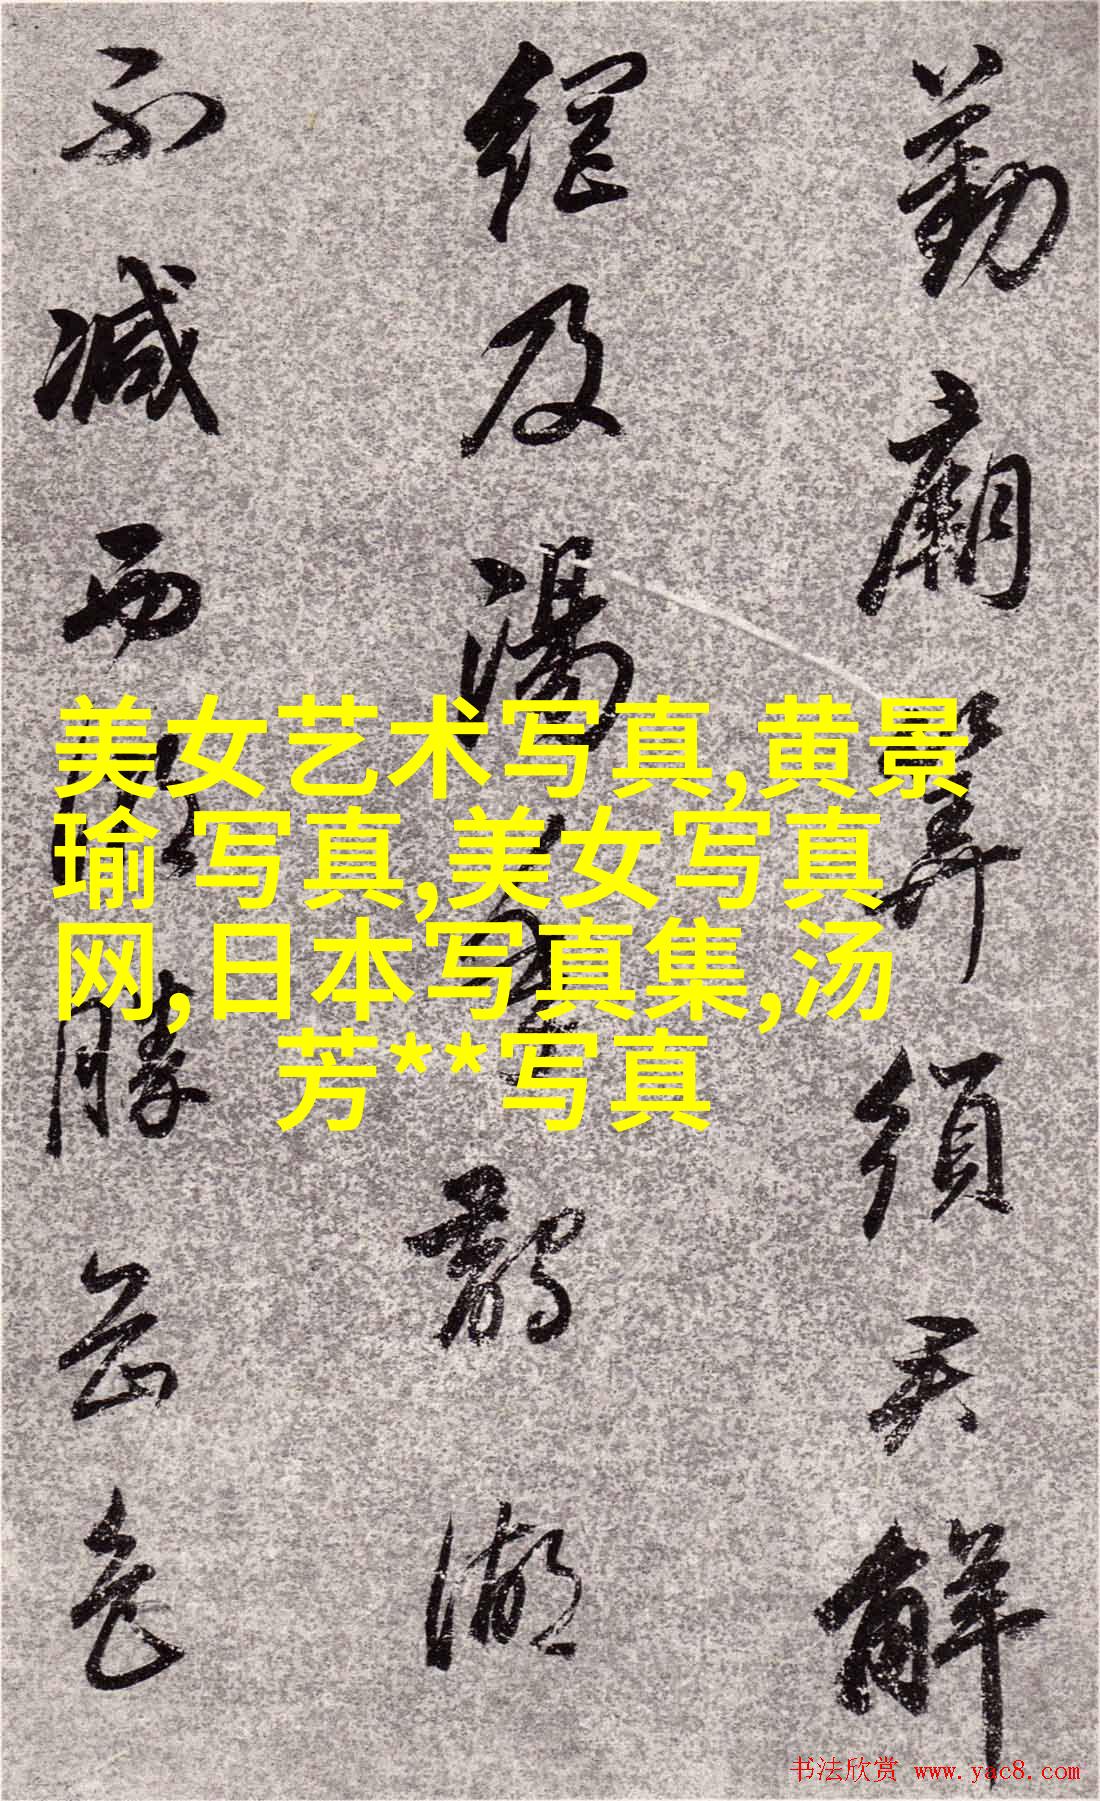 勤廟算須君解
網及湯鵲湖
不減西湖勝岳色
美女艺术写真,黄景
瑜 写真,美女写真
网,日本写真集,汤
芳**写真
书法欣赏 www.yac8.com